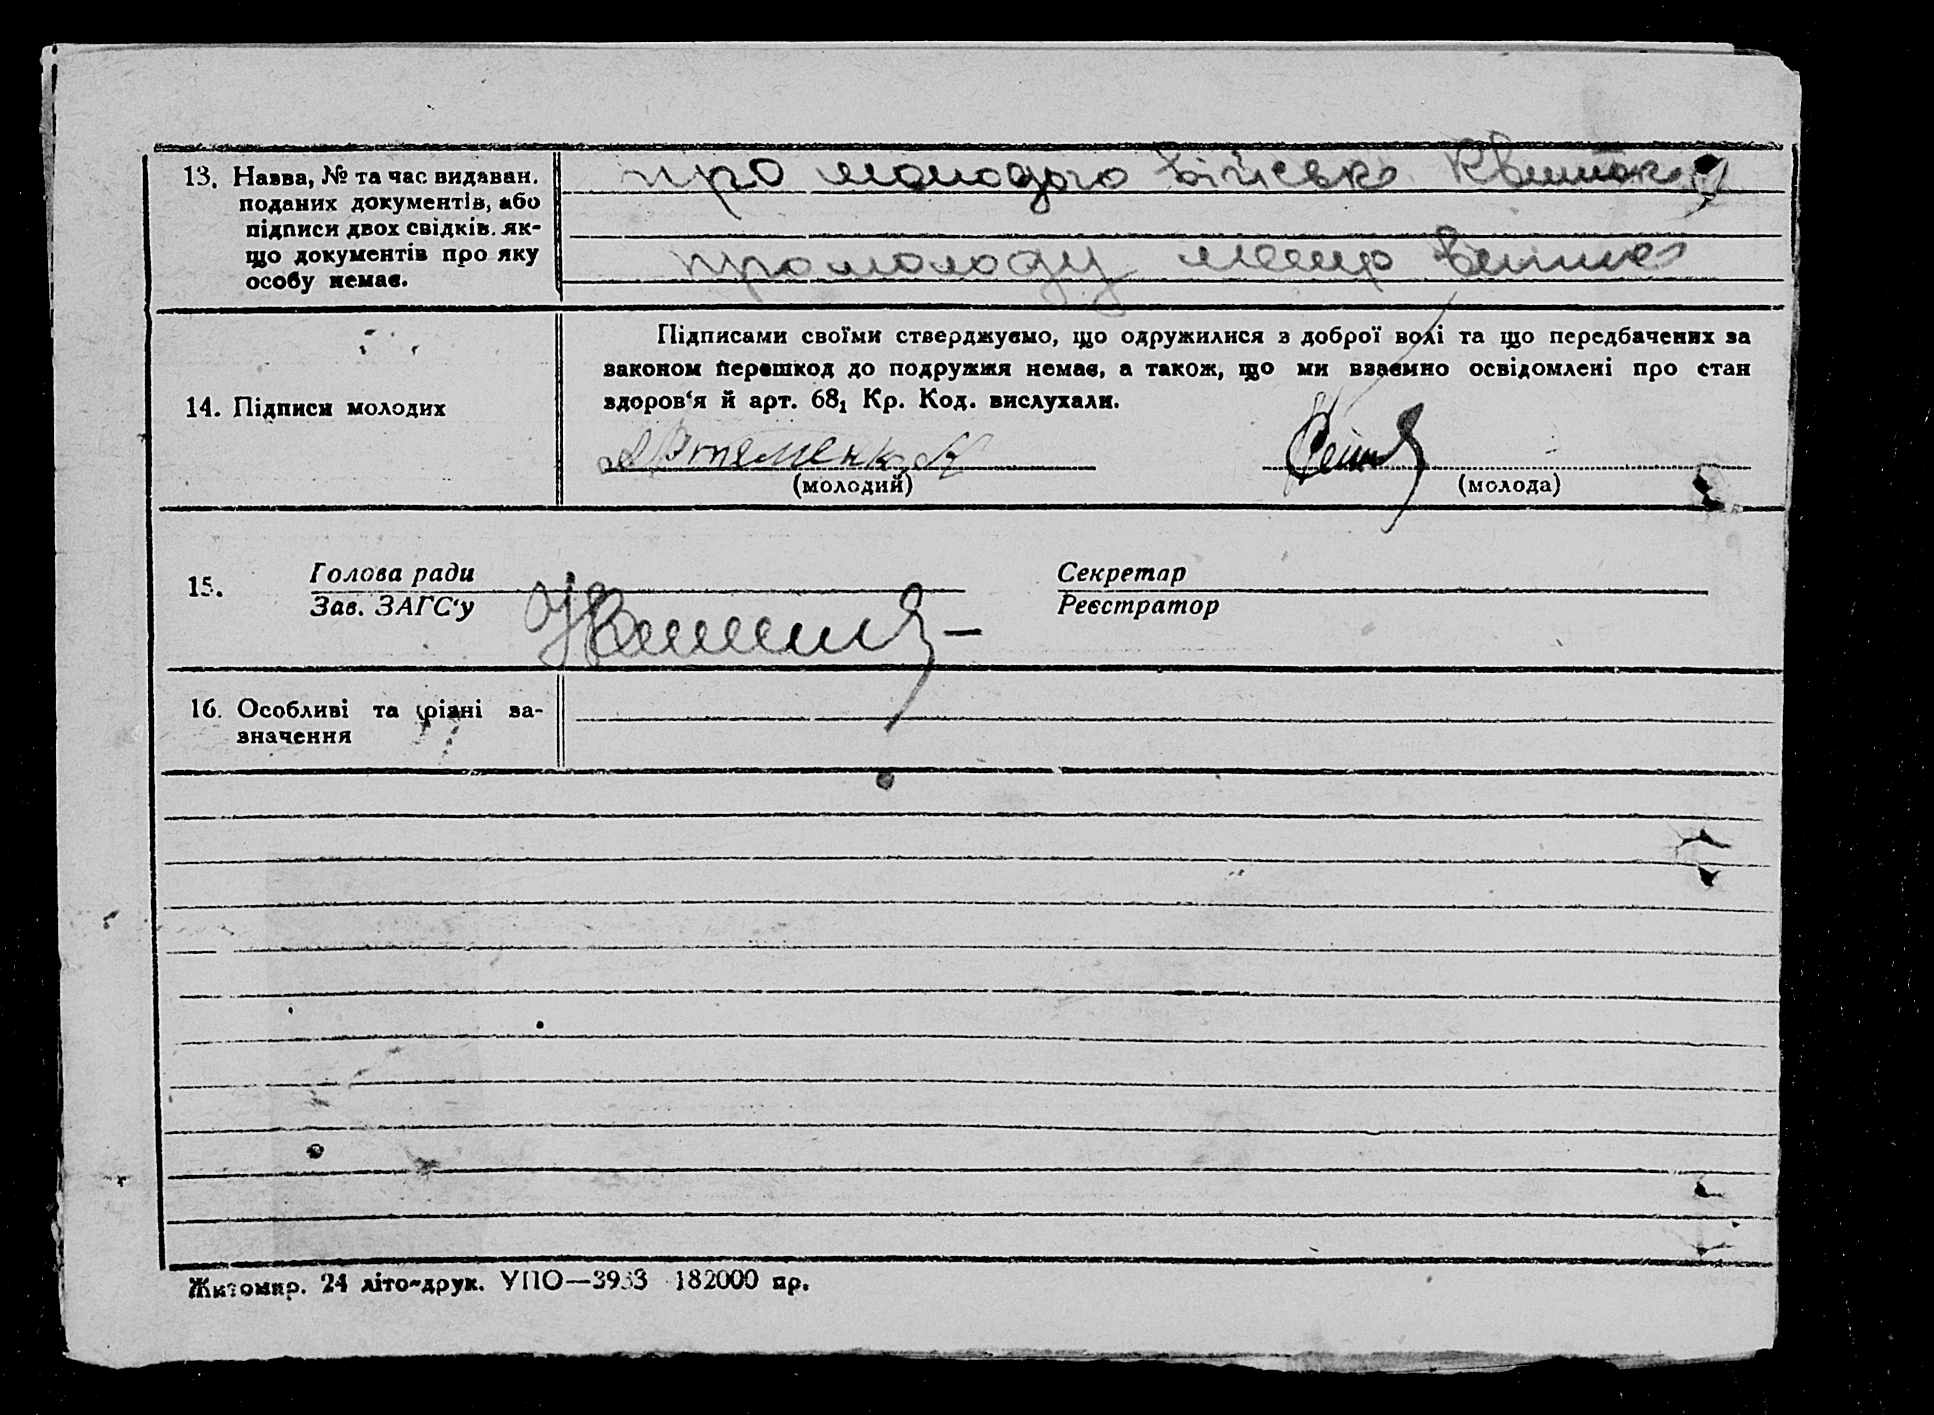 13. Назва, № та час видаван.
поданих документів, або
підписи двох свідків. як-
що документів про яку
особу немає.
про молодого військ. квиток
про молоду метр виписка
14. Підписи молодих
Підписами своїми стверджуємо, що одружилися з доброї волі та що передбачених за
законом перешкод до подружжя немає, а також, що ми взаємно освідомлені про стан
здоров'я й арт. 68₁ Кр. Код. вислухали.
Артеменко
(молодий)
(молода)
15.
Голова ради
Зав. ЗАГС'у
Секретар
Реєстратор
16. Особливі та різні за-
значення
Житомир. 24 літо-друк. УПО—3933 182000 пр.